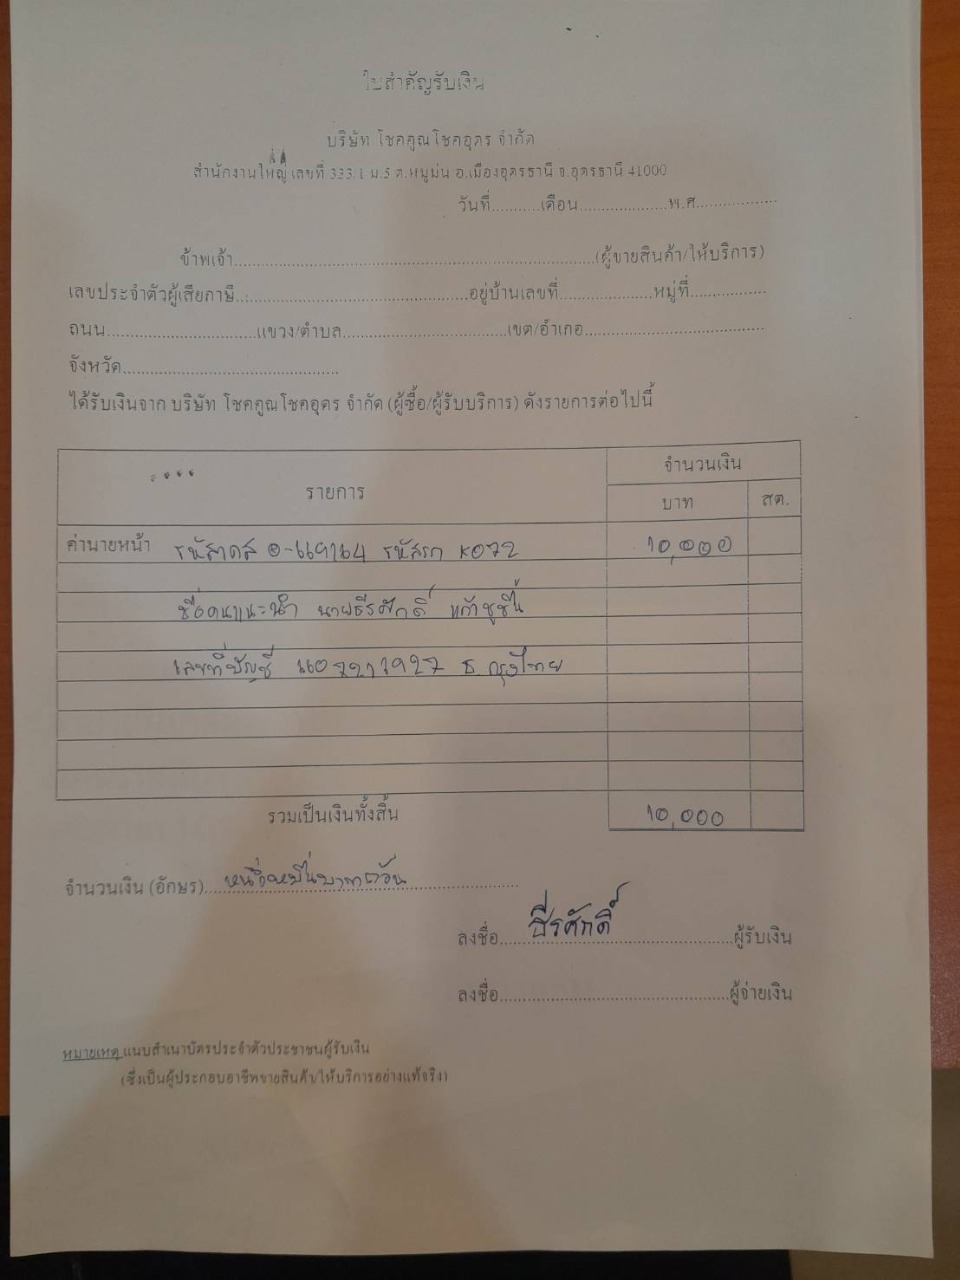 ใบสำคัญรับเงิน
บริษัท โชคคูณโชคอุดร จำกัด
สำนักงานใหญ่ เลขที่ 333/1 ม.5 ต.หมูม่น อ.เมืองอุดรธานี จ.อุดรธานี 41000
วันที่..........เดือน..................พ.ศ................
ข้าพเจ้า..........................................................................(ผู้ขายสินค้า/ให้บริการ)
เลขประจำตัวผู้เสียภาษี..:.............................................อยู่บ้านเลขที่...................หมู่ที่...............
ถนน...............................แขวง/ตำบล.................................เขต/อำเภอ....................................
จังหวัด............................................
ได้รับเงินจาก บริษัท โชคคูณโชคอุดร จำกัด (ผู้ซื้อ/ผู้รับบริการ) ดังรายการต่อไปนี้
รายการ จำนวนเงิน
บาท สต.
ค่านายหน้า รหัสเคส 0-669164 รหัสรถ K072 10,000
ชื่อคนแนะนำ นายธีรศักดิ์ แก้วชูชื่น
เลขที่บัญชี 1107271927 ธ.กรุงไทย
รวมเป็นเงินทั้งสิ้น 10,000
จำนวนเงิน (อักษร)....หนึ่งหมื่นบาทถ้วน
ลงชื่อ.....ธีรศักดิ์.....ผู้รับเงิน
ลงชื่อ...............................................ผู้จ่ายเงิน
หมายเหตุ แนบสำเนาบัตรประจำตัวประชาชนผู้รับเงิน
(ซึ่งเป็นผู้ประกอบอาชีพขายสินค้า/ให้บริการอย่างแท้จริง)